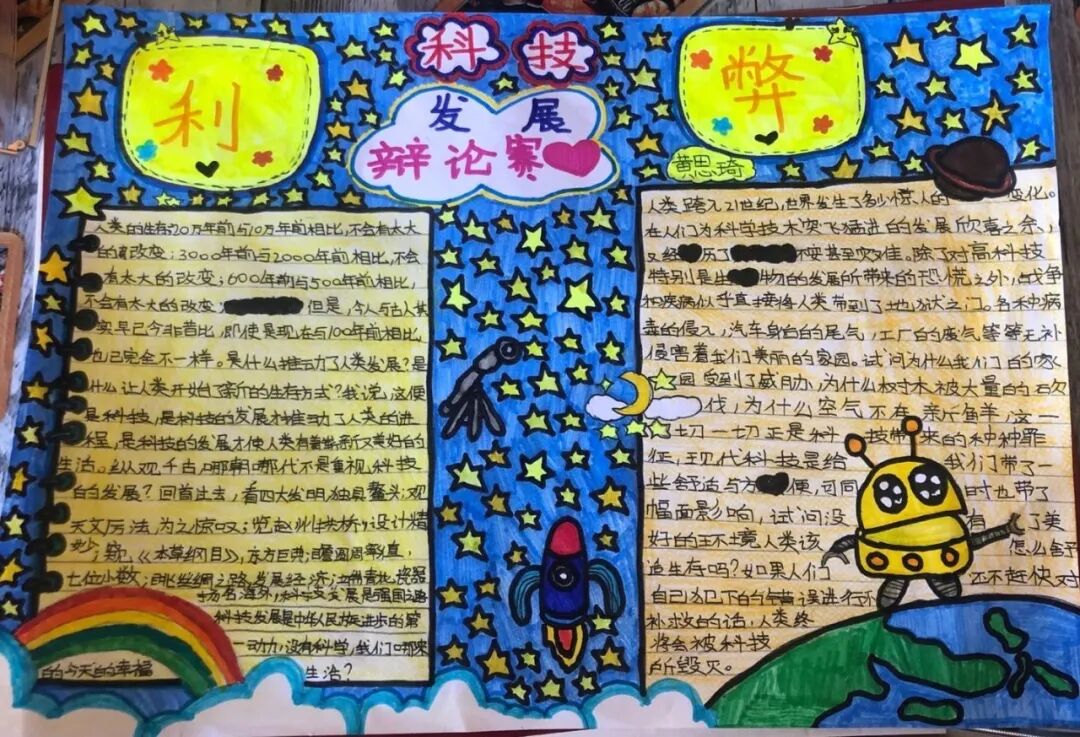 科技
发展
辩论赛
利
弊
黄思琦
人类的生存20万年前与10万年前相比,不会有太大
的改变;3000年前与2000年前相比,不会
有太大的改变;600年前与500年前相比,
不会有太大的改变; 但是,今人与古人其
实早已今非昔比,即使是现在与100年前相比,
也已完全不一样。是什么推动了人类发展?是
什么让人类开始了新的生存方式?我说,这便
是科技,是科技的发展才推动了人类的进
程,是科技的发展才使人类有着崭新又美好的
生活。纵观千古,哪朝哪代不是重视科技
的发展?回首过去,看四大发明独具鳌头;观
天文历法,为之惊叹;览赵州拱桥,设计精
妙;《本草纲目》,东方巨典;圆周率值,
七位小数;丝绸之路,发展经济;瓷器
扬名海外,科技发展是强国之路
科技发展是中华人民族进步的第
动力,没有科学,我们哪来
的今天的幸福 生活?
人类跨入21世纪,世界发生了多少惊人的 变化。
在人们为科学技术突飞猛进的发展欣喜之余,
又经历了 不要甚至灾难。除了对高科技
特别是生物的发展所带来的恐慌之外,战争
和疾病似乎直接将人类带到了地狱之门。各种病
毒的侵入,汽车的尾气,工厂的废气等等无补
侵害着我们美丽的家园。试问为什么我们的家
园受到了威胁,为什么树木被大量的砍
伐,为什么空气不在新鲜,这一
切一切正是科技带来的种种罪
征,现代科技是给 我们带了一
些舒适与方便,可同 时也带了
幅面影响,试问没 有 了美
好的环境人类该 怎么舍予
造生存吗?如果人们 还不赶快对
自己犯下的错误进行
补救的话,人类终
将会被科技
所毁灭。